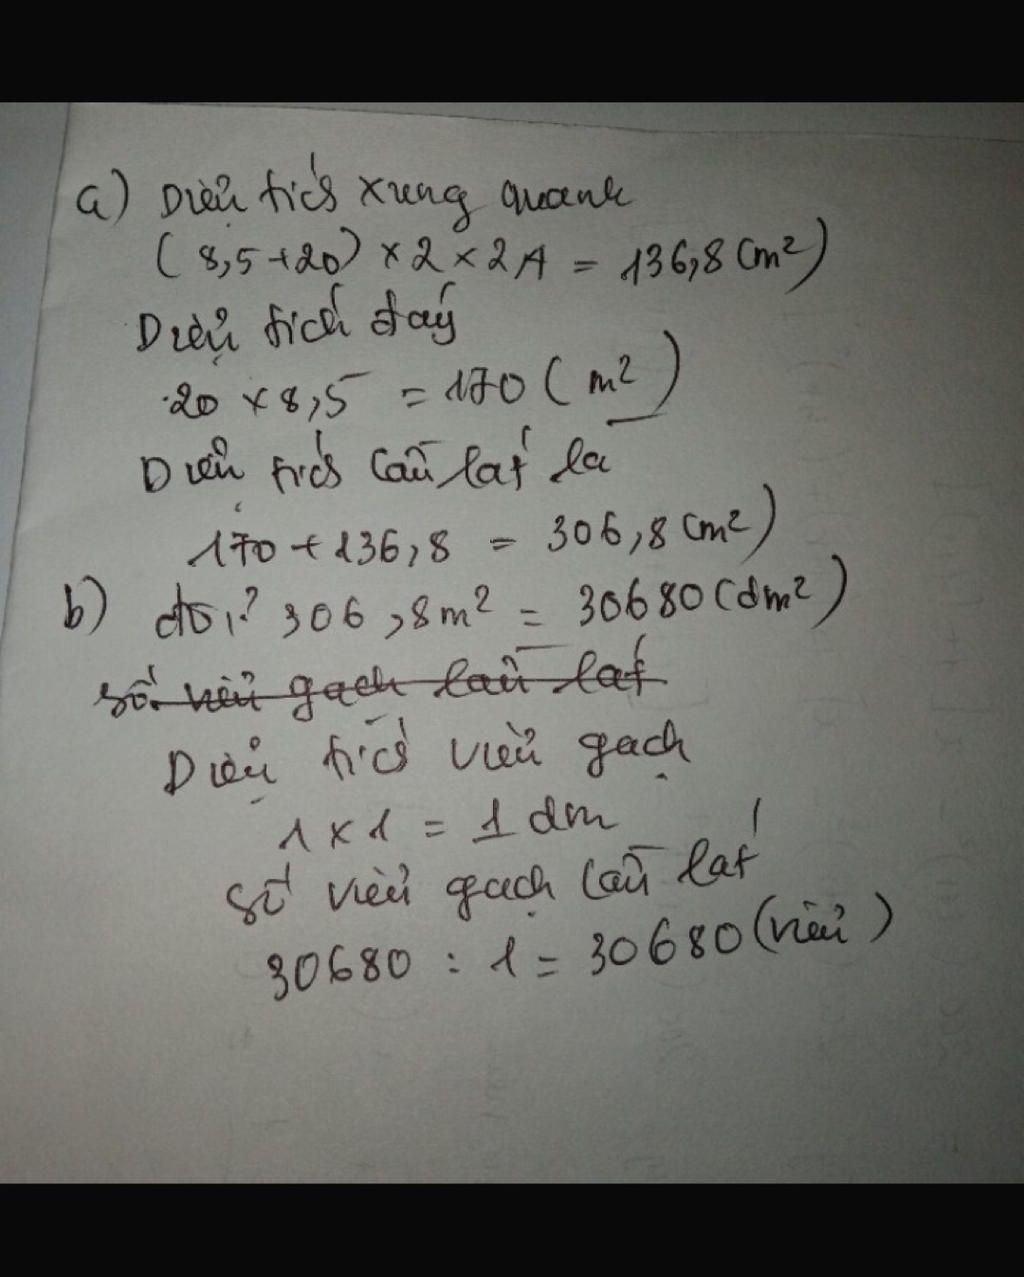 a) Diện tích xung quanh
(8,5+20) x 2 x 2,4 = 136,8 (m²)
Diện tích đáy
20 x 8,5 = 170 (m²)
Diện tích cần lát là
170 + 136,8 = 306,8 (m²)
b) đổi 306,8m² = 30680 (dm²)
số viên gạch cần lát
Diện tích viên gạch
1 x 1 = 1 dm
Số viên gạch cần lát
30680 : 1 = 30680 (viên)